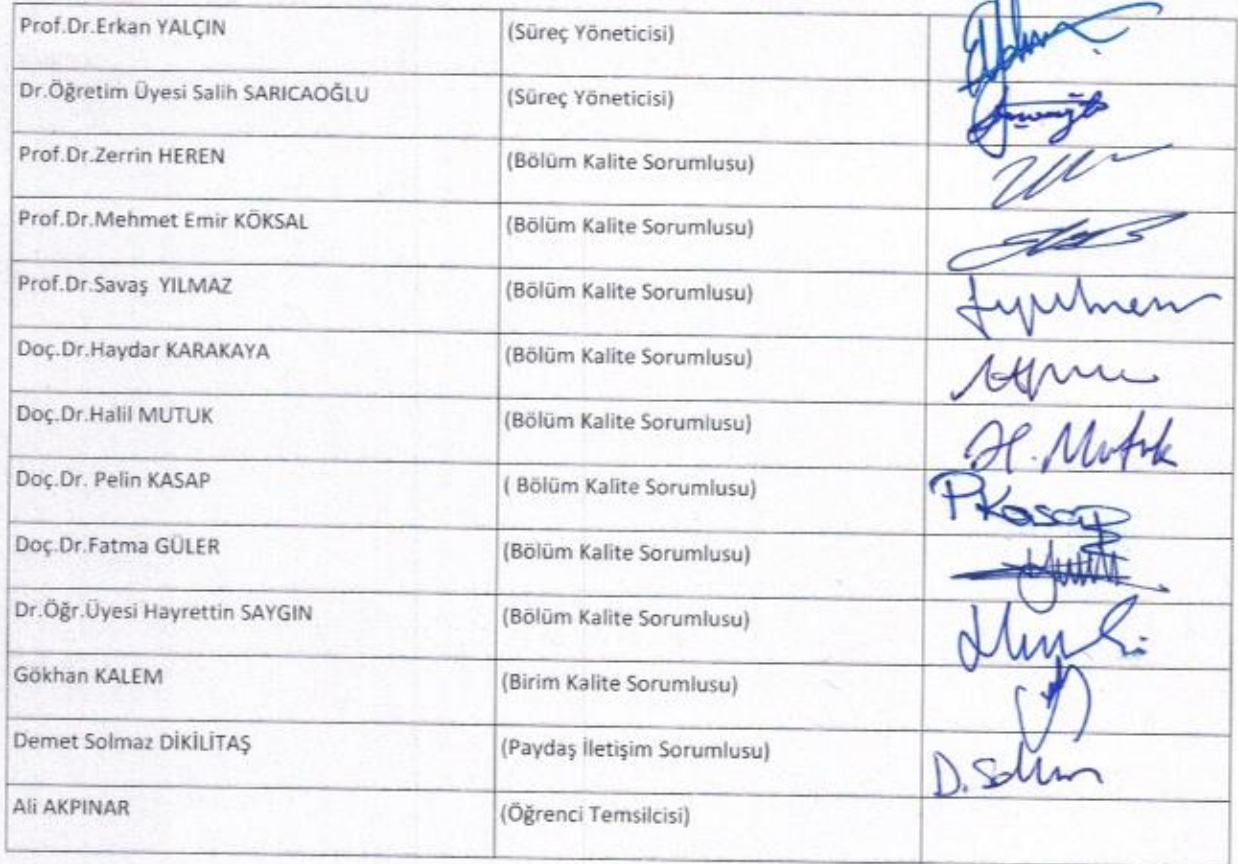 Prof.Dr.Erkan YALÇIN (Süreç Yöneticisi)
Dr.Öğretim Üyesi Salih SARICAOĞLU (Süreç Yöneticisi)
Prof.Dr.Zerrin HEREN (Bölüm Kalite Sorumlusu)
Prof.Dr.Mehmet Emir KÖKSAL (Bölüm Kalite Sorumlusu)
Prof.Dr.Savaş YILMAZ (Bölüm Kalite Sorumlusu)
Doç.Dr.Haydar KARAKAYA (Bölüm Kalite Sorumlusu)
Doç.Dr.Halil MUTUK (Bölüm Kalite Sorumlusu) H. Mutuk
Doç.Dr. Pelin KASAP ( Bölüm Kalite Sorumlusu) PKasap
Doç.Dr.Fatma GÜLER (Bölüm Kalite Sorumlusu)
Dr.Öğr.Üyesi Hayrettin SAYGIN (Bölüm Kalite Sorumlusu)
Gökhan KALEM (Birim Kalite Sorumlusu)
Demet Solmaz DİKİLİTAŞ (Paydaş İletişim Sorumlusu)
Ali AKPINAR (Öğrenci Temsilcisi)